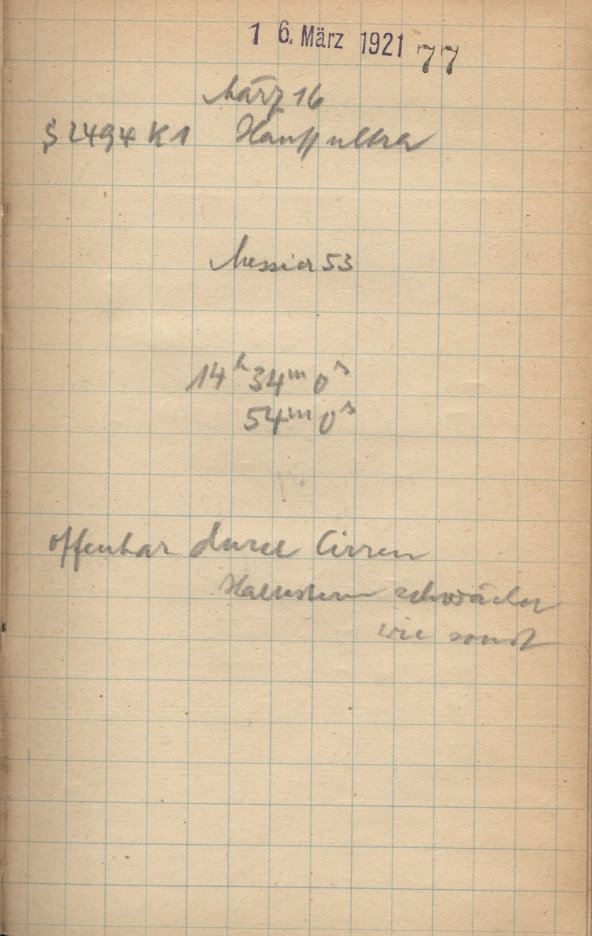 16. März 1921 77
März 16
S 2494 K1 Hauff ultra
Messier 53
14ʰ 34ᵐ 0ˢ
54ᵐ 0ˢ
offenbar durch Cirren
Haltestern schwächer
wie sonst